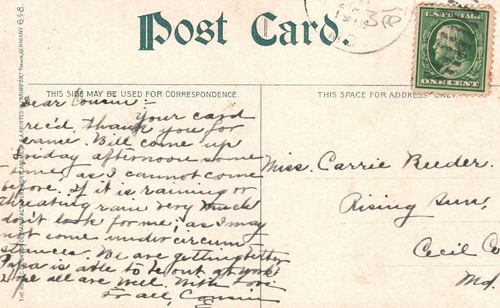 Post Card.
THIS SIDE MAY BE USED FOR CORRESPONDENCE.
THIS SPACE FOR ADDRESS ONLY.
U.S. POSTAGE
ONE CENT
Dear Cousin:-
Your card
rec'd. Thank you for
same. Will come up
Friday afternoon some
time, as I cannot come
before. If it is raining or
threating rain very much
don't look for me; as I may
not come under circum
stances. We are getting better
Papa is able to be out at work
Hope all are well. With Love
to all, Cousin
Miss. Carrie Reeder.
Rising Sun,
Cecil Co
Md.